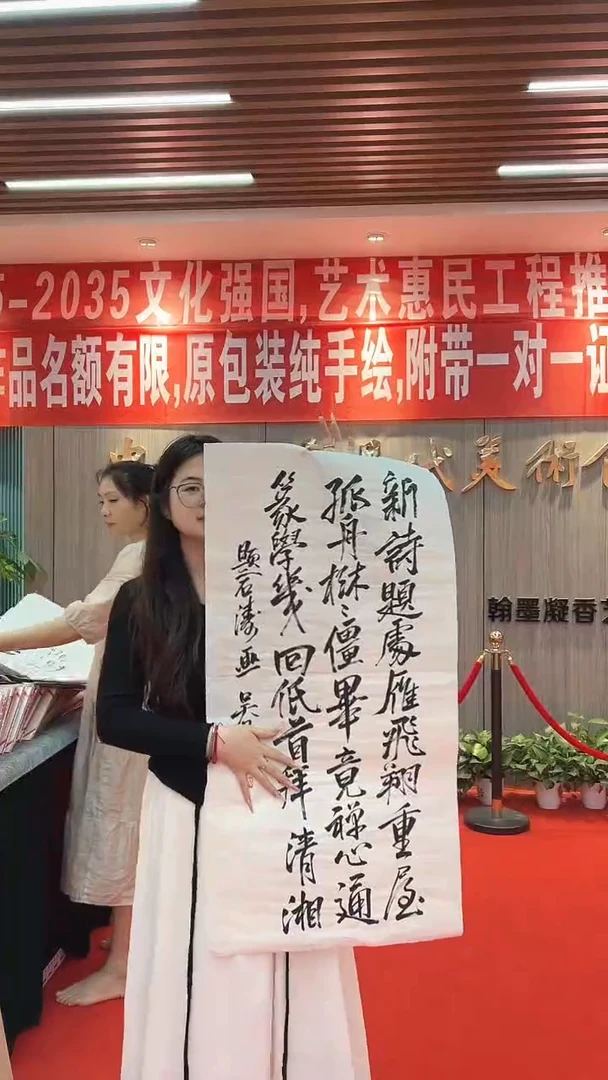 5-2035文化强国,艺术惠民工程推
作品名额有限,原包装纯手绘,附带一对一证
中
代美術
翰墨凝香
新詩題處雁飛翔重屋
孤舟樹〻僵畢竟禪心通
篆學幾回低首拜清湘
題石濤画 吴